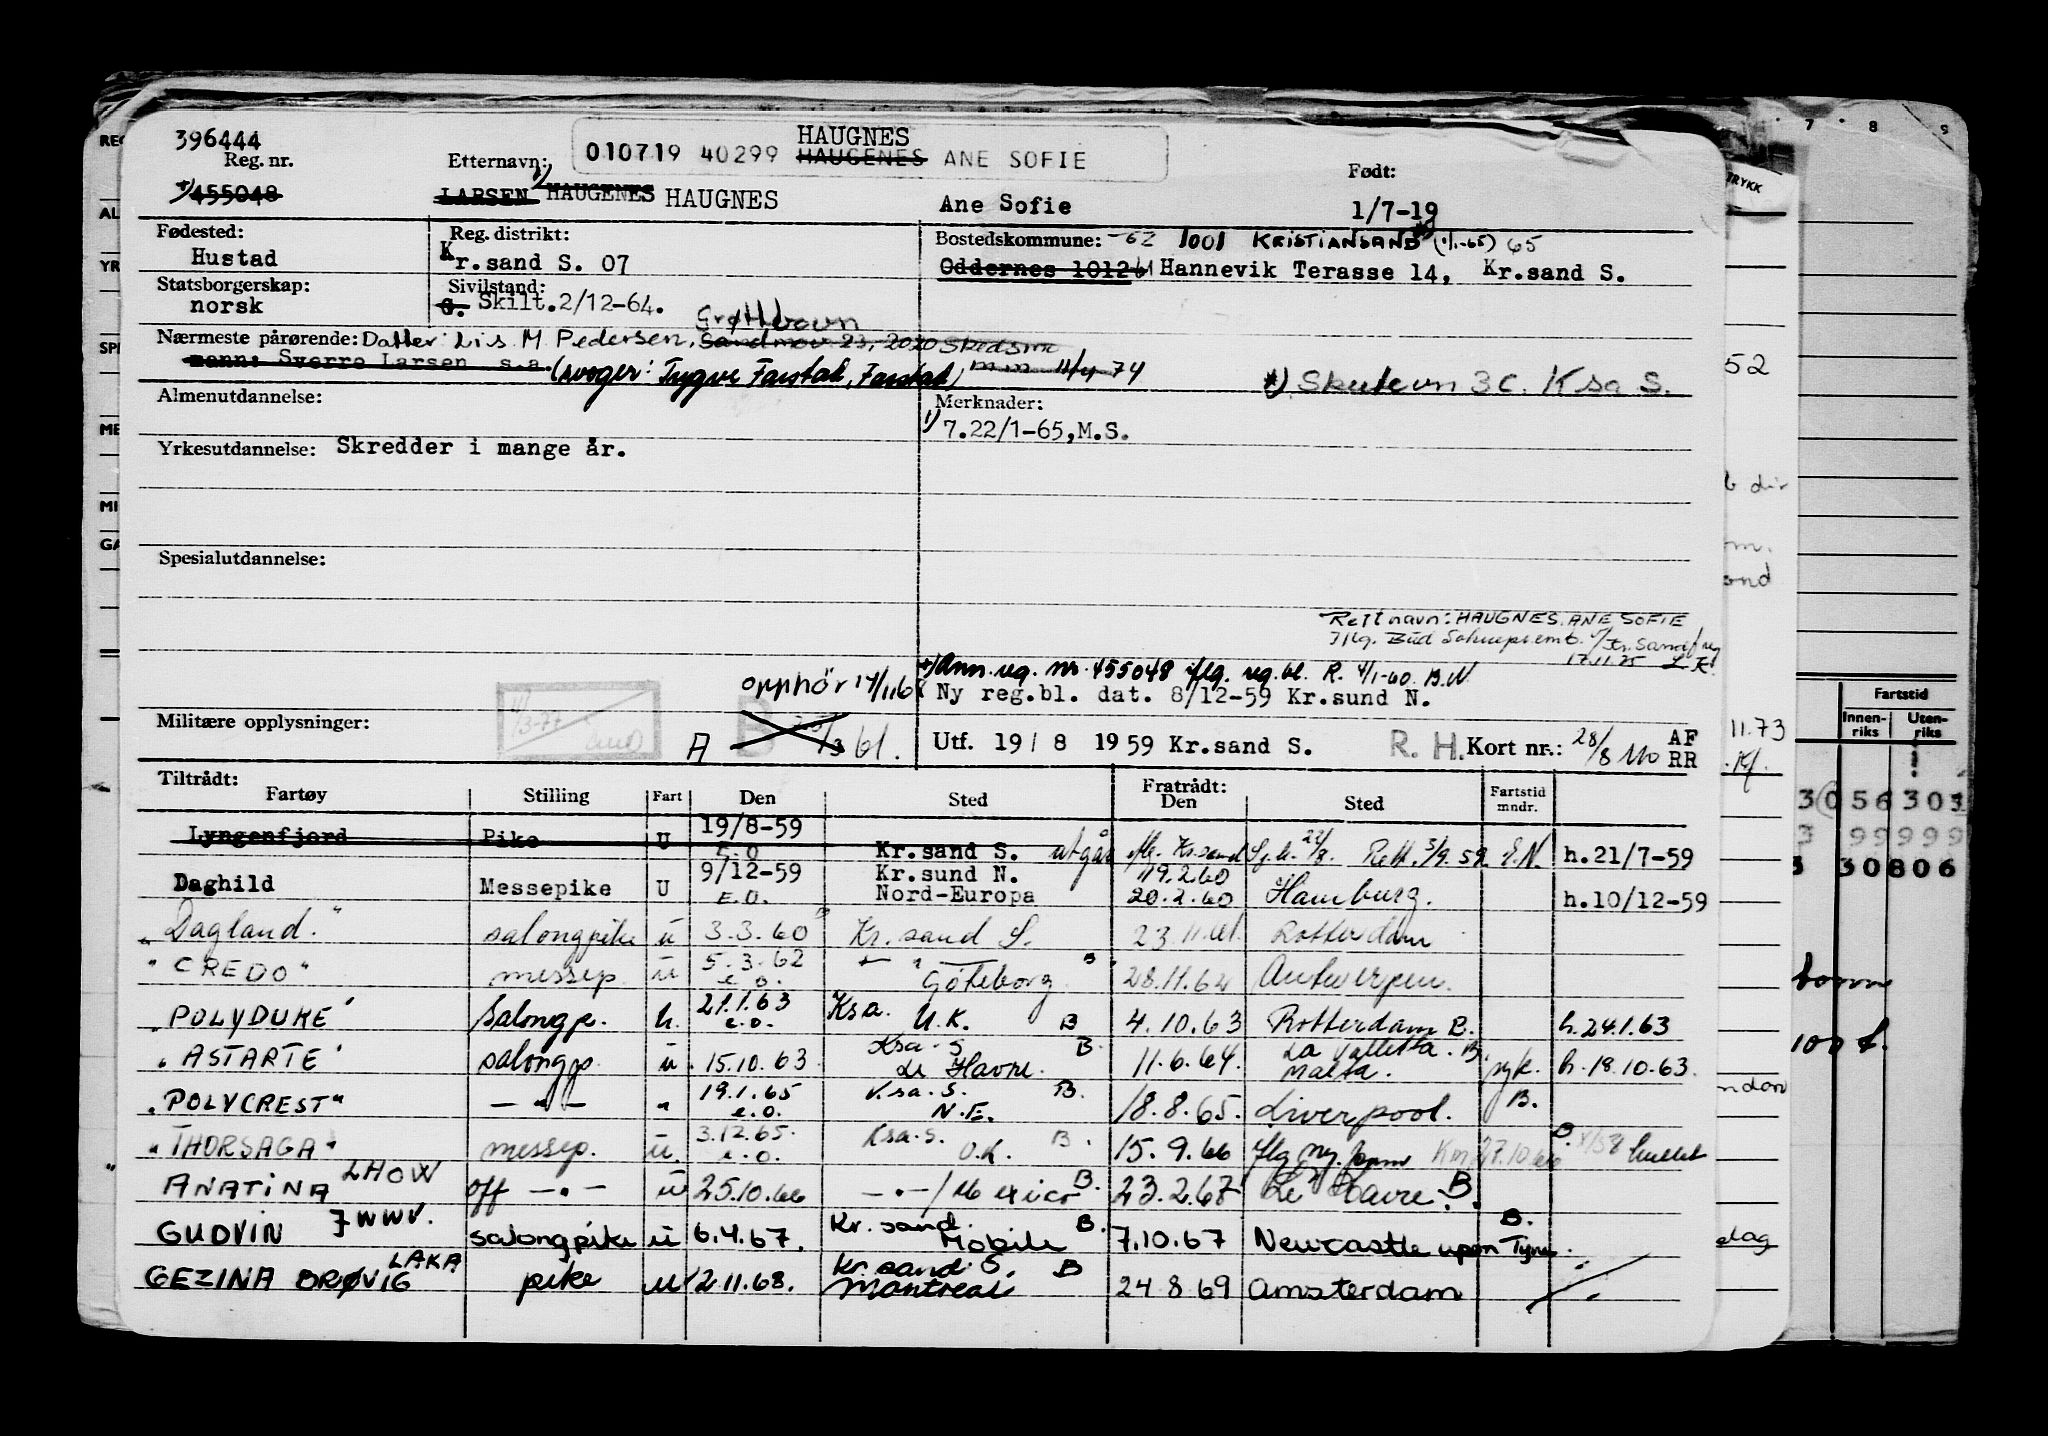 396444
Reg. nr.
Etternavn:
HAUGNES
010719 40299 HAUGENES ANE SOFIE
Født:
455048
LARSEN HAUGENES HAUGNES
Ane Sofie
1/7-19
Fødested:
Hustad
Reg. distrikt:
Kr.sand S. 07
Bostedskommune: -62 1001 KRISTIANSAND (1/1-65) 65
Oddernes 1012 Hannevik Terasse 14, Kr.sand S.
Statsborgerskap:
norsk
Sivilstand:
G. Skilt.2/12-64.
Nærmeste pårørende: Datter Lis M Pedersen, 2020 Skedsmo
mann: Sverre Larsen s.a. 11/4-74
Skutevn 3C. Ksa S.
Almenutdannelse:
Merknader:
1) 7.22/1-65, M.S.
Yrkesutdannelse: Skredder i mange år.
Spesialutdannelse:
Rett navn: HAUGNES, ANE SOFIE
17.11.75
Ann. reg. nr. 455048 iflg. reg.bl. R. 4/1-60 B.N
Ny reg.bl. dat. 8/12-59 Kr.sund N.
opphör
Militære opplysninger:
A B
Utf. 19/8 1959 Kr.sand S.
R. H. Kort nr.: 28/8 AF
RR
Tiltrådt:
Fartøy Stilling Fart Den Sted
Fratrådt:
Den Sted
Fartstid
mndr.
Lyngenfjord Pike U 19/8-59 E.O Kr.sand S. utgår 22/8. Rett. 3/9.59 h.21/7-59
Daghild Messepike U 9/12-59 E.O. Kr.sund N. Nord-Europa 20.2.60 Hamburg. h.10/12-59
"Dagland." salongpike u 3.3.60 Kr.sand S. 23.11.61. Rotterdam
"CREDO" messep. u 5.3.62 e.o. Göteborg B. 28.11.62 Antwerpen.
"POLYDUKE" Salongp. u. 21.1.63 e.o. Ksa. U.K. B 4.10.63 Rotterdam B. h.24.1.63
"ASTARTE" salongp. u. 15.10.63 Ksa. S Le Havre. B. 11.6.64. La Valletta. B. Malta. syk. h.18.10.63.
"POLYCREST" — " — " 19.1.65 e.o. K.sa.S. N.E. B. 18.8.65. Liverpool. B.
"THORSAGA" messep. u. 3.12.65. e.o. Ksa.S. B. 15.9.66
ANATINA LHOW off — " — u 25.10.66 — " — / Mexico B. 23.2.67 Le Havre. B.
GUDVIN JWWV. salongpike u 6.4.67. Kr. sand. Mobile B. 7.10.67 Newcastle upon Tyne. B.
GEZINA BRØVIG LAKA pike u 2.11.68. Kr. sand S. Montreal B 24.8.69 Amsterdam
TRYKK
7 8 9
52
11.73
Fartstid
Innen-
riks
Uten-
riks
056 303
99 999
30806